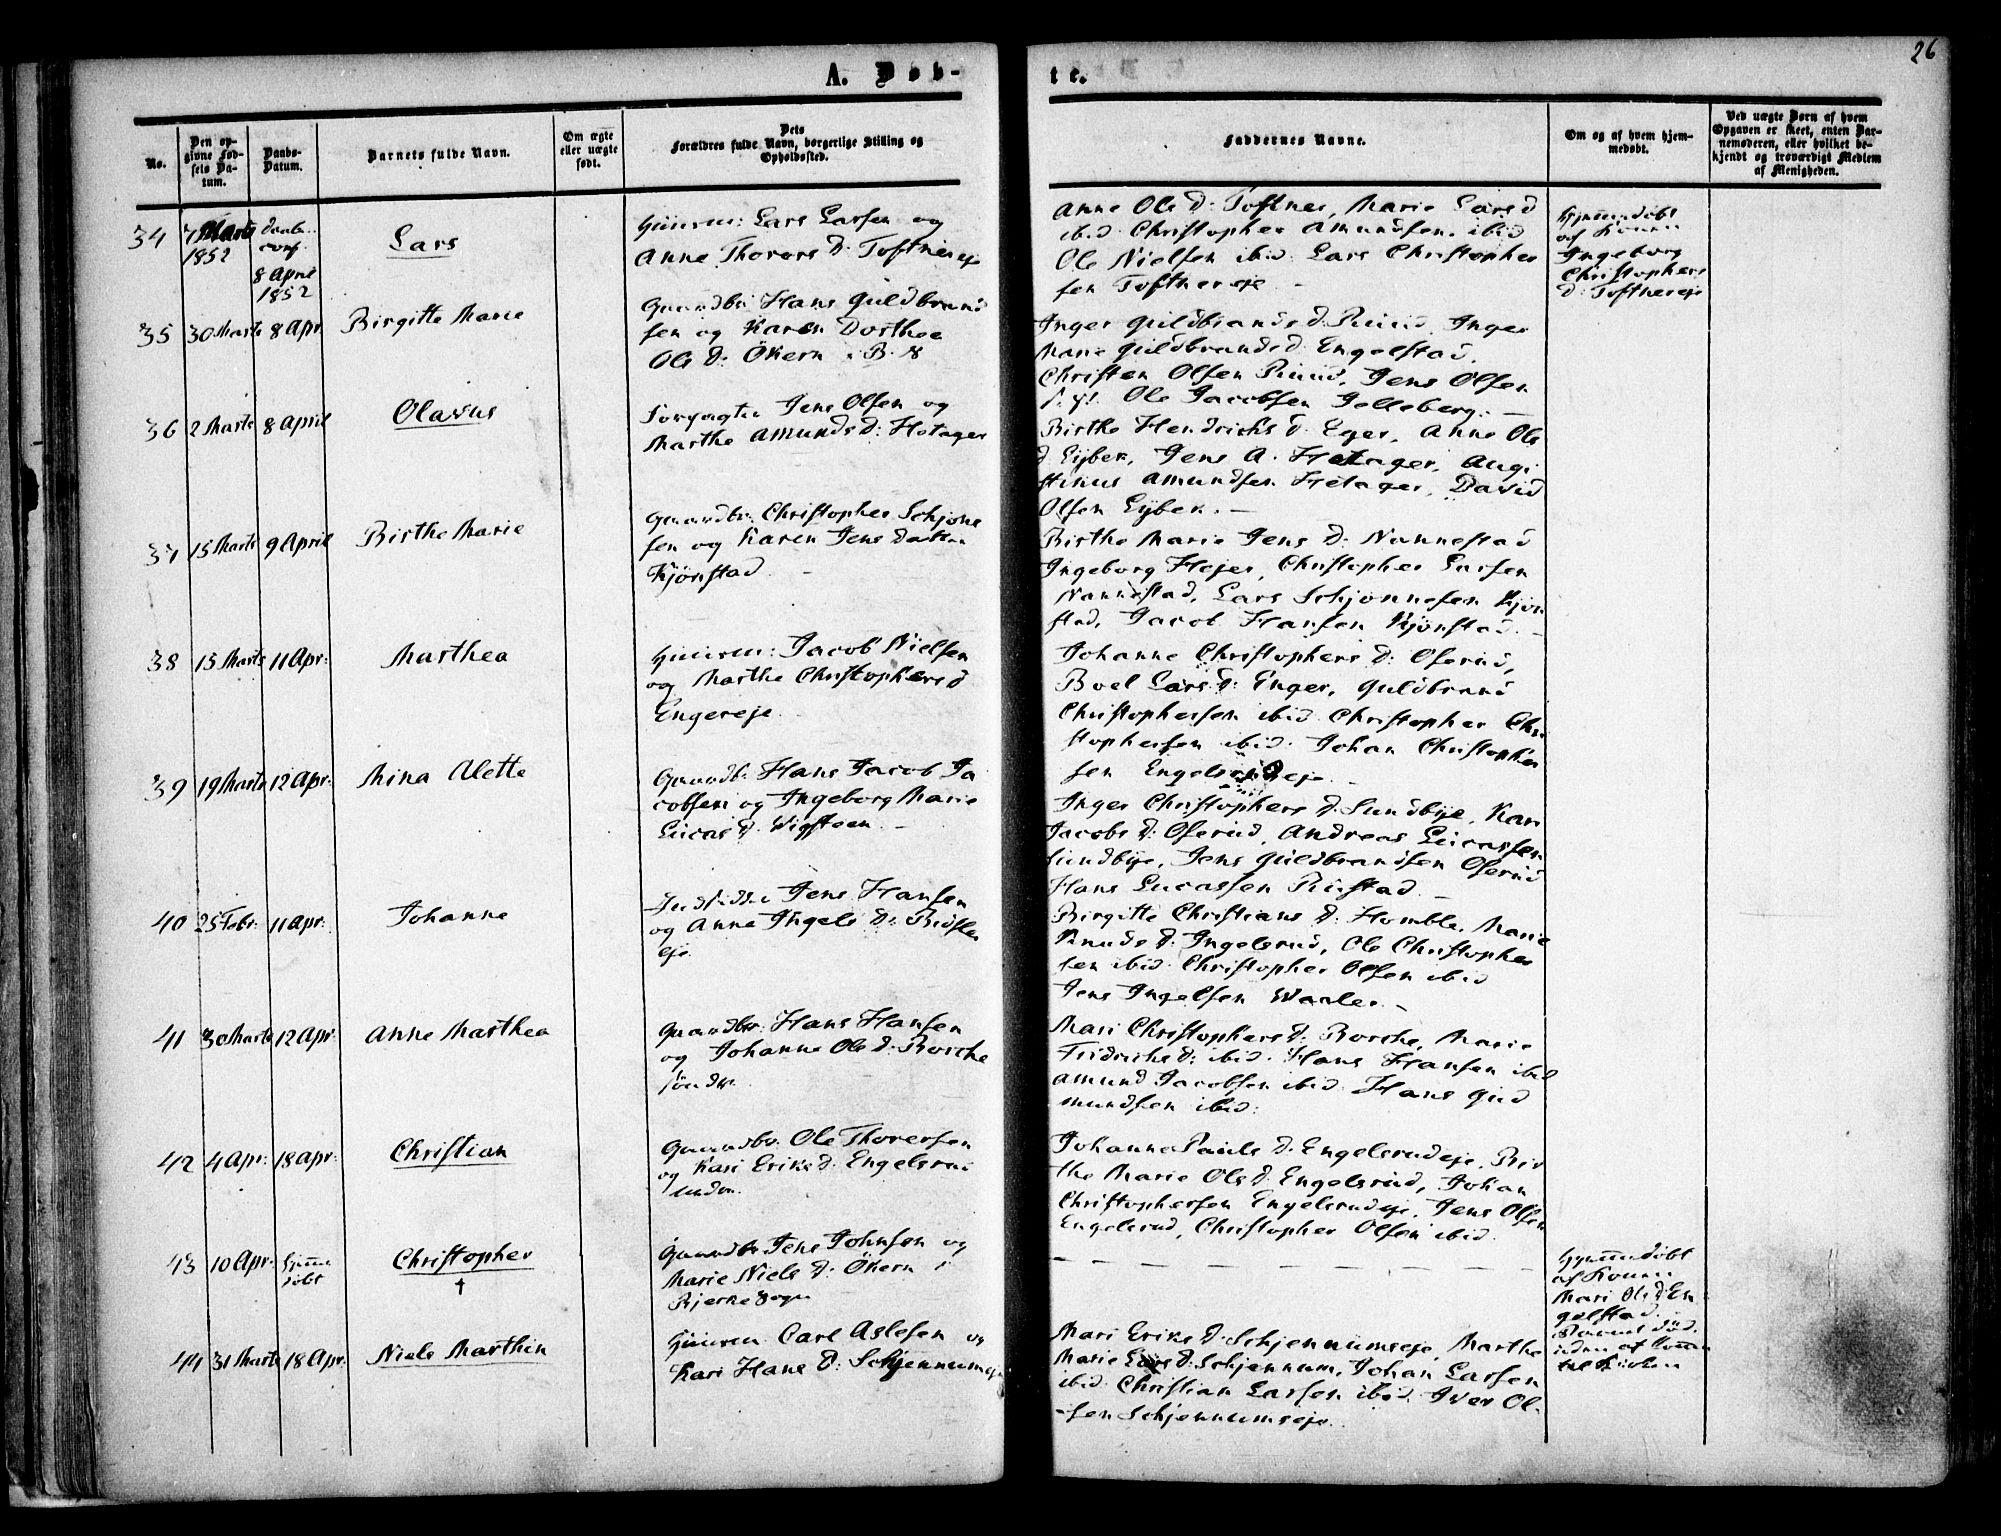 26
A. Døb-
te.
No.
Den op-
givne Fød-
sels Da-
tum.
Daabs-
Datum.
Barnets fulde Navn.
Om ægte
eller uægte
født.
Dets
Forældres fulde Navn, borgerlige Stilling og
Opholdssted.
Faddernes Navne.
Om og af hvem hjem-
medøbt.
Ved uægte Børn af hvem
Opgaven er skeet, enten Bar-
nemoderen, eller hvilket be-
kjendt og troværdigt Medlem
af Menigheden.
34
Marts
1852
daabs
conf
8 April
1852
Lars
Huusm: Lars Larsen og
Anne Thorers D: Toftnereje
Anne Ols D: Toftner, Marie Lars d
ibid Christopher Amundsen ibid
Ole Nielsen ibid Lars Christopher
sen Toftnereje –
Hjemmedøbt
af Konen
Ingeborg
Christophers
D: Toftnereje
35
30 Marts
8 Apr
Birgitte Marie
Gaardbr: Hans Guldbrand
sen og Karen Dorthea
Ols D: Ökern i B. S
Inger Guldbrands d. Ruud, Inger
Marie Guldbrands d. Engelstad,
Christen Olsen Ruud, Jens Olsen
Ole Jacobsen Jelleberg. –
36
2 Marts
8 April
Olavus
Jens Olsen og
Marthe Amunds D: Hotager
Birthe Hendrichs d. Eger, Anne Ols
d Eyben, Jens A. Hotager, Augi
stinus Amundsen Hotager, David
Olsen Eyben. –
37
15 Marts
9 April
Birthe Marie
Gaardbr: Christopher Schjøne
sen og Karen Jens Datter
Kjönstad –
Birthe Marie Jens D: Nannestad
Ingeborg Hejer, Christopher Larsen
Nannestad, Lars Schjønnesen Kjön
stad, Jacob Hansen Kjönstad. –
38
15 Marts
11 Apr:
Marthea
Huusm: Jacob Nielsen
og Marthe Christophers d
Engereje
Johanne Christophers D: Oserud,
Boel Lars D: Enger, Guldbrand
Christophersen ibid Christopher Chri
stophersen ibid. Johan Christopher
sen Engelsrudeje –
39
19 Marts
12 Apr:
Mina Alette
Gaardb: Hans Jacob Ja
cobsen og Ingeborg Marie
Lucas D. Wigsteen –
Inger Christophers D. Sundbye, Kari
Jacobs D: Oserud, Andreas Lucassen
Sundbye, Jens Guldbrandsen Oserud
Hans Lucassen Rustad –
40
25 Febr:
11 Apr:
Johanne
Inderster Jens Hansen
og Anne Ingels D:
eje
Birgitte Christians D: Homble, Marie
Knuds D: Ingelsrud, Ole Christopher
sen ibid Christopher Olsen ibid
Jens Ingelsen Waaler. –
41
30 Marts
12 Apr:
Anne Marthea
Gaardbr: Hans Hansen
og Johanne Ols D: Borche
söndre
Mari Christophers D: Borche, Marie
Fridrichs D: ibid. Hans Hansen ibid
Amund Jacobsen ibid Hans Gud
mundsen ibid:
42
4 Apr:
18 Apr:
Christian
Gaardbr. Ole Thoresen
og Kari Eriks D. Engelsrud
nedre
Johanne Pauls D. Engelsrudeje, Bir
the Marie Ols D. Engelsrud, Johan
Christophersen Engelsrudeje, Jens Olsen
Engelsrud, Christopher Olsen ibid.
43
10 Apr:
Hjemme
døbt
Christopher
†
Gaardbr Jens Johnsen og
Marie Niels D: Ökern i
Bjerke Sogn
Hjemmedøbt
af Konen
Mari Ols D: En
gelstad
Barnet død
inden at komme
til Kirken
44
31 Marts
18 Apr:
Niels Marthin
Huusm Carl Aslesen og
Kari Hans D: Schjennumeje
Mari Eriks D. Schjennumseje, Marthe
Marie Lars D. Schjennum, Johan Larsen
ibid Christian Larsen ibid. Iver Ol-
sen Schjennumseje